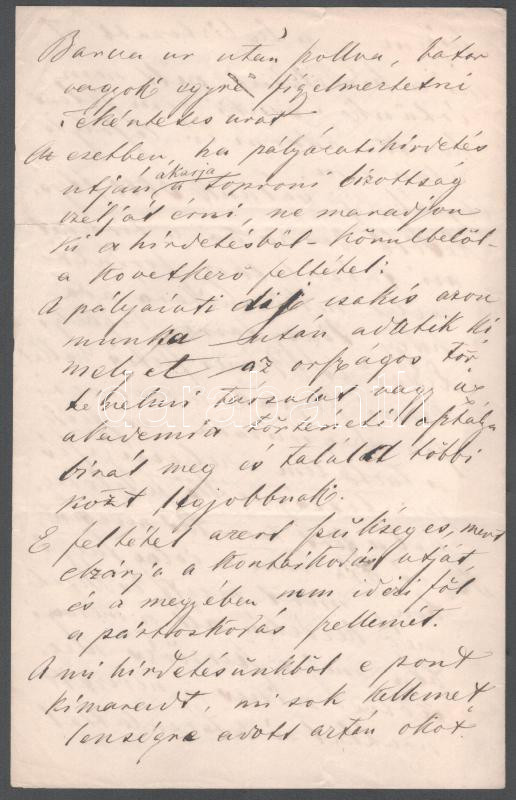 Barcza ur után szóllva, bátor
vagyok egyre figyelmeztetni
Tekéntetes urat
Az esetben, ha pályázatihirdetés
akarja
utján a soproni bizottság
czélját érni, ne maradjon
ki a hirdetésböl - körulbelöl -
a következö feltétel:
A pályázati dij csakis azon
munka után adatik ki
melyet az országos tör
ténelmi tarsulat vagy az
akademia történeti osztálya
birál meg és talál a többi
közt legjobbnak.
E feltétel azert szükséges, mert
elzárja a kontárkodás utját
és a megyében nem idézi föl
a pártoskodás szellemét.
A mi hirdetésünkböl e pont
kimaradt, mi sok kellemet
lenségre adott aztán okot.
darabanth